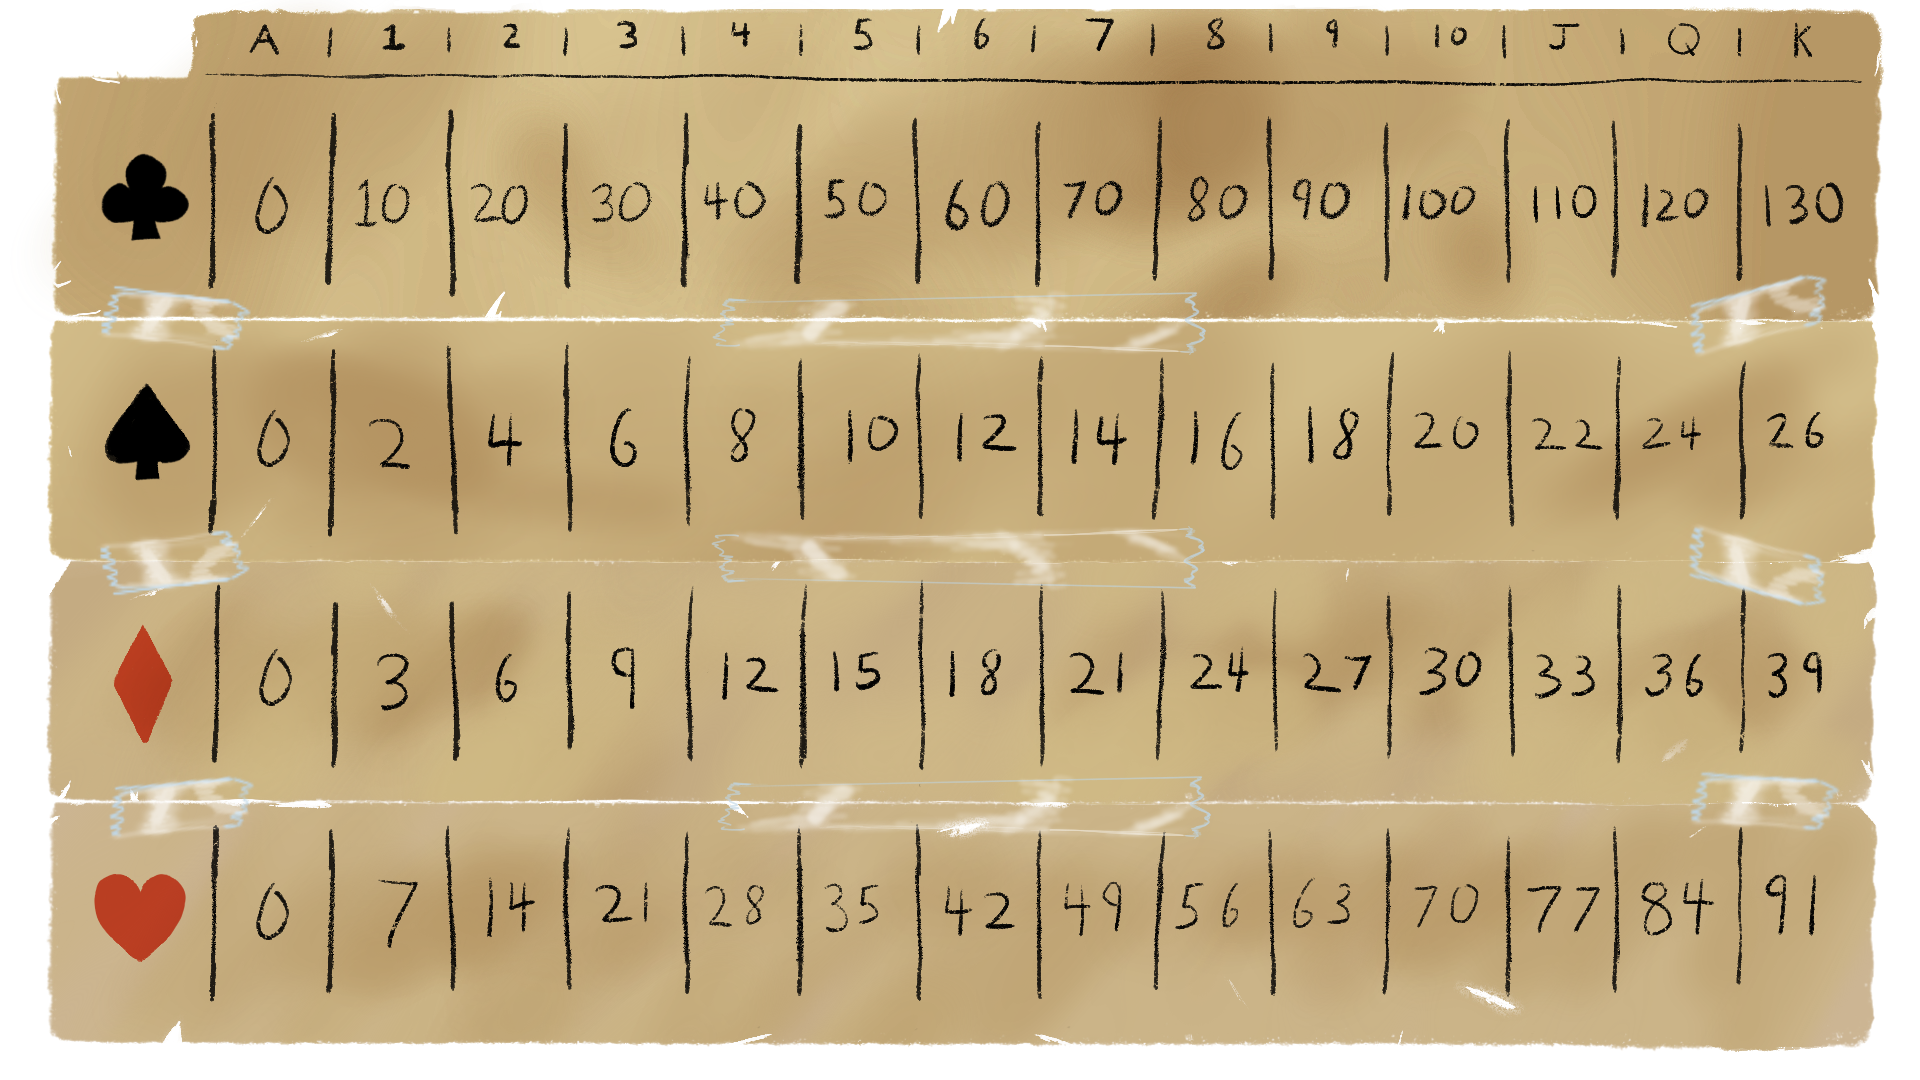 A | 1 | 2 | 3 | 4 | 5 | 6 | 7 | 8 | 9 | 10 | J | Q | K
♣ | 0 | 10 | 20 | 30 | 40 | 50 | 60 | 70 | 80 | 90 | 100 | 110 | 120 | 130
♠ | 0 | 2 | 4 | 6 | 8 | 10 | 12 | 14 | 16 | 18 | 20 | 22 | 24 | 26
♦ | 0 | 3 | 6 | 9 | 12 | 15 | 18 | 21 | 24 | 27 | 30 | 33 | 36 | 39
♥ | 0 | 7 | 14 | 21 | 28 | 35 | 42 | 49 | 56 | 63 | 70 | 77 | 84 | 91